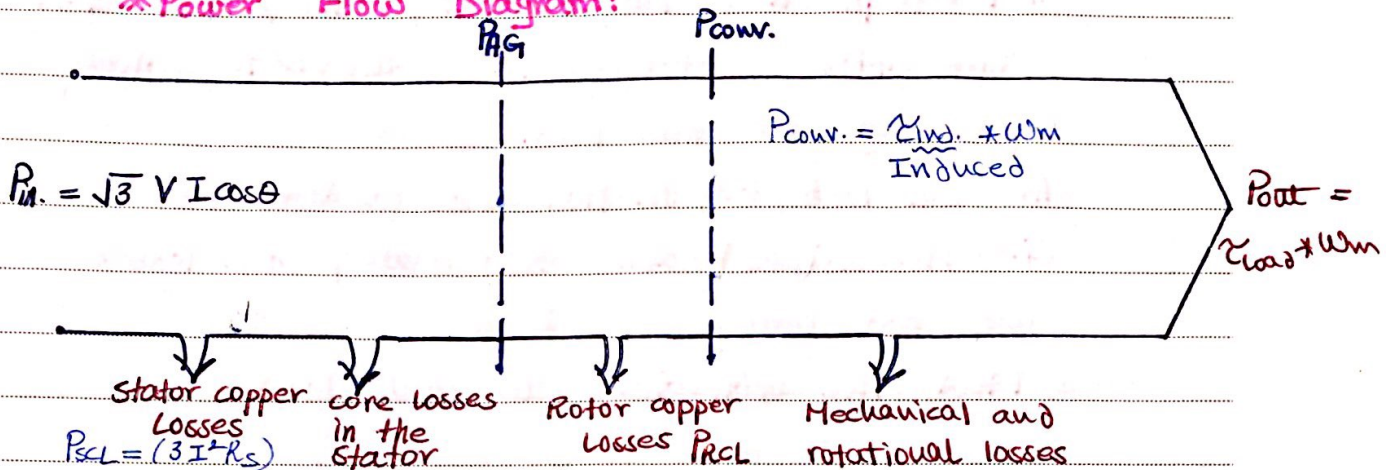 *Power Flow Diagram:
PAG
Pconv.
Pconv. = τind. * ωm
Induced
Pin. = √3 V I cosθ
Pout =
τload * ωm
Stator copper
Losses
PSCL = (3I²RS)
core losses
in the
stator
Rotor copper
Losses PRCL
Mechanical and
rotational losses